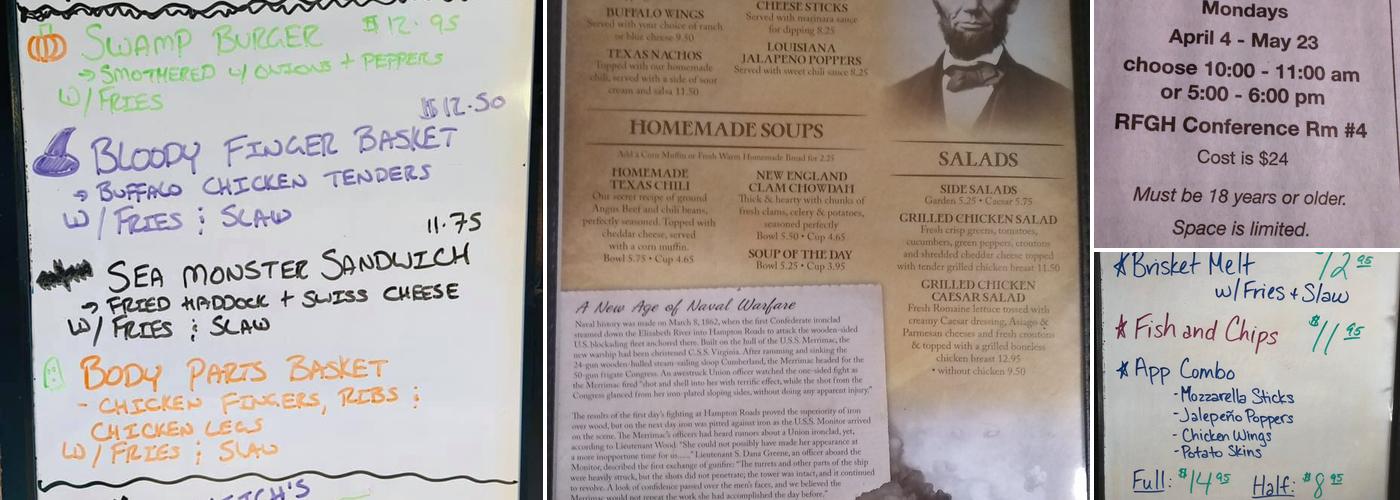 SWAMP BURGER $12.95
→ SMOTHERED W/ ONIONS + PEPPERS
W/ FRIES
$12.50
BLOODY FINGER BASKET
→ BUFFALO CHICKEN TENDERS
W/ FRIES & SLAW
11.75
SEA MONSTER SANDWICH
→ FRIED HADDOCK + SWISS CHEESE
W/ FRIES & SLAW
BODY PARTS BASKET
- CHICKEN FINGERS, RIBS &
CHICKEN LEGS
W/ FRIES & SLAW
BUFFALO WINGS
Served with your choice of ranch
or blue cheese 9.50
TEXAS NACHOS
Topped with our homemade
chili, served with a side of sour
cream and salsa 11.50
CHEESE STICKS
Served with marinara sauce
for dipping 8.25
LOUISIANA
JALAPENO POPPERS
Served with sweet chili sauce 8.25
HOMEMADE SOUPS
Add a Corn Muffin or Fresh Warm Homemade Bread for 2.25
HOMEMADE
TEXAS CHILI
Our secret recipe of ground
Angus Beef and chili beans,
perfectly seasoned. Topped with
cheddar cheese, served
with a corn muffin.
Bowl 5.75 • Cup 4.65
NEW ENGLAND
CLAM CHOWDAH
Thick & hearty with chunks of
fresh clams, celery & potatoes,
seasoned perfectly
Bowl 5.50 • Cup 4.65
SOUP OF THE DAY
Bowl 5.25 • Cup 3.95
SALADS
SIDE SALADS
Garden 5.25 • Caesar 5.75
GRILLED CHICKEN SALAD
Fresh crisp greens, tomatoes,
cucumbers, green peppers, croutons
and shredded cheddar cheese topped
with tender grilled chicken breast 11.50
GRILLED CHICKEN
CAESAR SALAD
Fresh Romaine lettuce tossed with
creamy Caesar dressing, Asiago &
Parmesan cheeses and fresh croutons
& topped with a grilled boneless
chicken breast 12.95
• without chicken 9.50
A New Age of Naval Warfare
Naval history was made on March 8, 1862, when the first Confederate ironclad
steamed down the Elizabeth River into Hampton Roads to attack the wooden-sided
U.S. blockading fleet anchored there. Built on the hull of the U.S.S. Merrimac, the
new warship had been christened C.S.S. Virginia. After ramming and sinking the
24-gun wooden-hulled steam-sailing sloop Cumberland, the Merrimac headed for the
50-gun frigate Congress. An awestruck Union officer watched the one-sided fight as
the Merrimac fired "shot and shell into her with terrific effect, while the shot from the
Congress glanced from her iron-plated sloping sides, without doing any apparent injury."
The results of the first day's fighting at Hampton Roads proved the superiority of iron
over wood, but on the next day iron was pitted against iron as the U.S.S. Monitor arrived
on the scene. The Merrimac's officers had heard rumors about a Union ironclad, yet,
according to Lieutenant Wood: "She could not possibly have made her appearance at
a more inopportune time for us....." Lieutenant S. Dana Greene, an officer aboard the
Monitor, described the first exchange of gunfire: "The turrets and other parts of the ship
were heavily struck, but the shots did not penetrate; the tower was intact, and it continued
to revolve. A look of confidence passed over the men's faces, and we believed the
Merrimac would not repeat the work she had accomplished the day before."
Mondays
April 4 - May 23
choose 10:00 - 11:00 am
or 5:00 - 6:00 pm
RFGH Conference Rm #4
Cost is $24
Must be 18 years or older.
Space is limited.
Brisket Melt 12 95
w/ Fries + Slaw
Fish and Chips $11 95
App Combo
- Mozzarella Sticks
- Jalepeño Poppers
- Chicken Wings
- Potato Skins
Full: $14 95 Half: $8 95